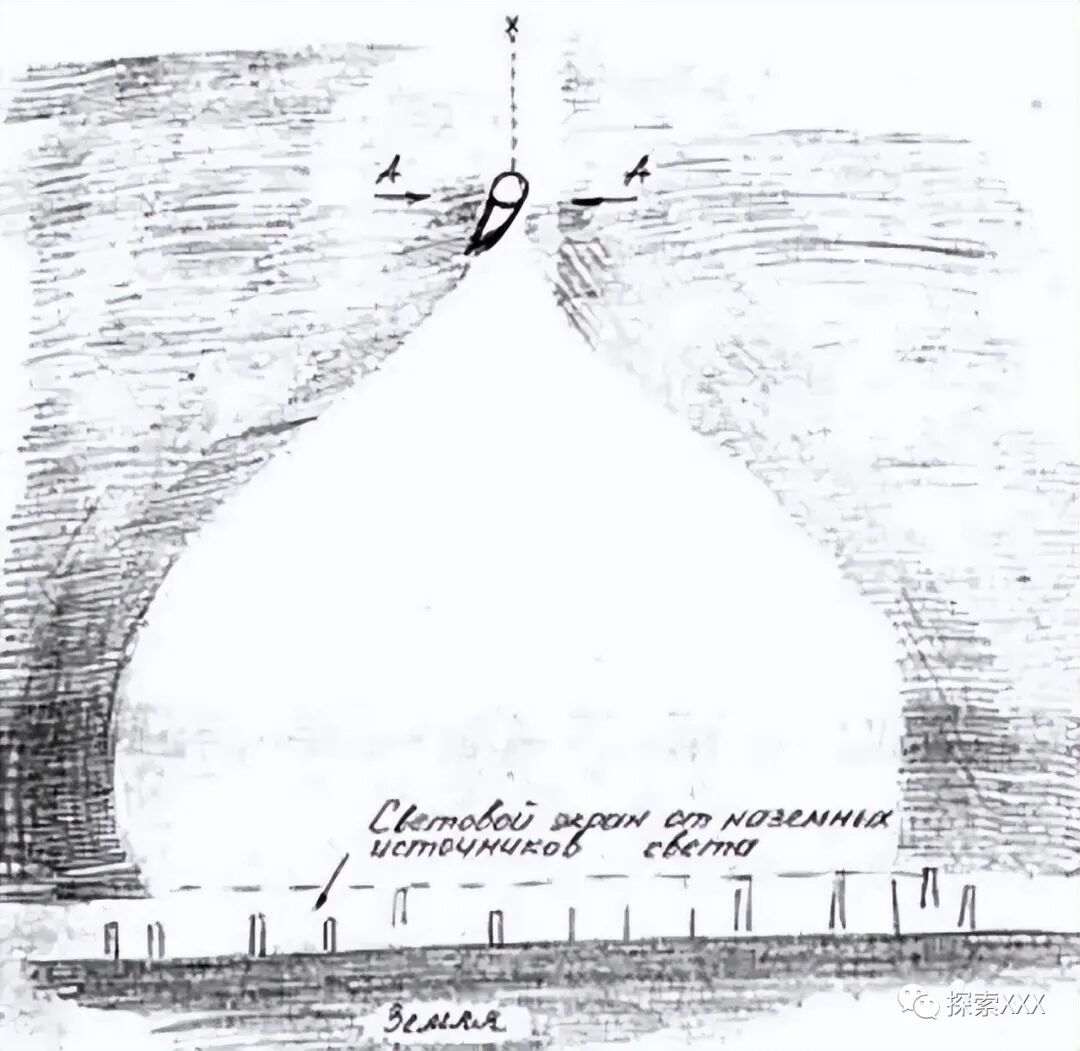 х
А А
Световой экран от наземных
источников света
Земля
探索XXX